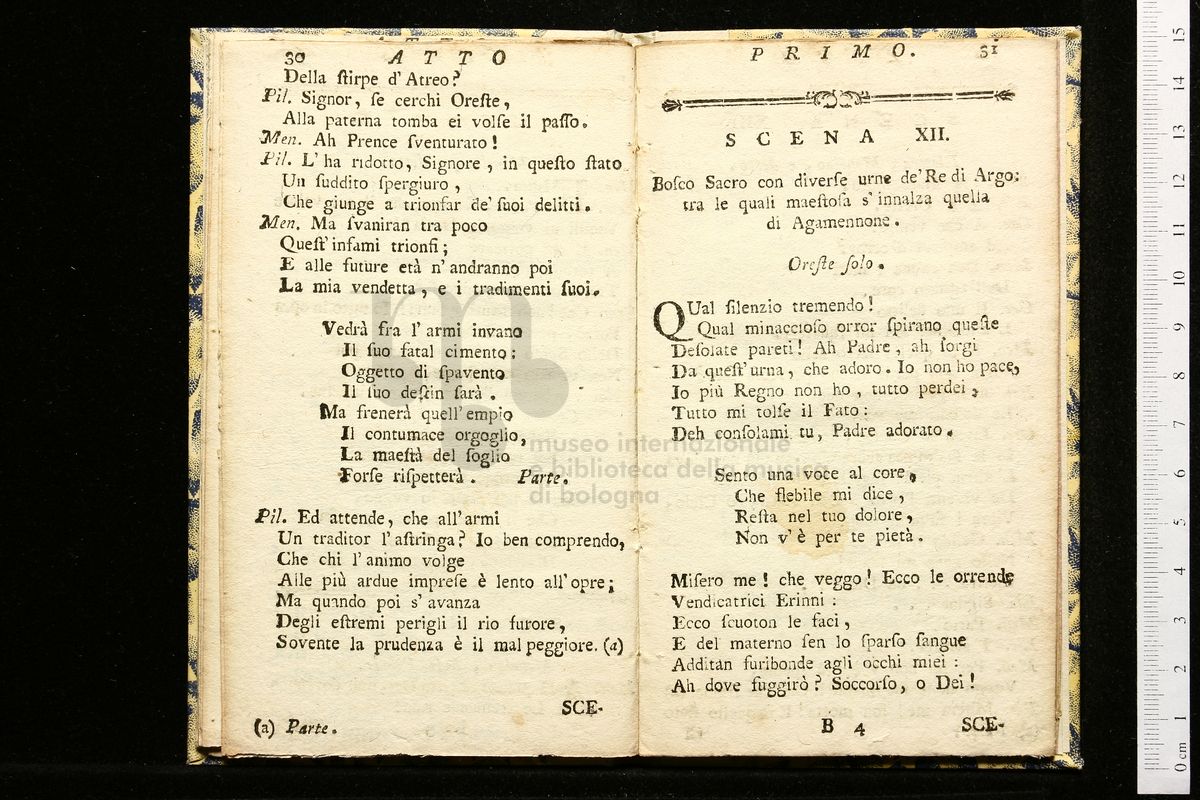 30 ATTO
Della ſtirpe d'Atreo?
Pil. Signor, ſe cerchi Oreſte,
Alla paterna tomba ei volſe il paſſo.
Men. Ah Prence ſventurato!
Pil. L'ha ridotto, Signore, in queſto ſtato
Un ſuddito ſpergiuro,
Che giunge a trionfar de' ſuoi delitti.
Men. Ma ſvaniran tra poco
Queſt' infami trionfi;
E alle future età n'andranno poi
La mia vendetta, e i tradimenti ſuoi.
Vedrà fra l'armi invano
Il ſuo fatal cimento:
Oggetto di ſpavento
Il ſuo deſtin ſarà.
Ma frenerà quell' empio
Il contumace orgoglio,
La maeſtà del ſoglio
Forſe riſpetterà. Parte.
Pil. Ed attende, che all'armi
Un traditor l'aſtringa? Io ben comprendo,
Che chi l'animo volge
Alle più ardue impreſe è lento all'opre;
Ma quando poi s'avanza
Degli eſtremi perigli il rio furore,
Sovente la prudenza è il mal peggiore. (a)
SCE-
(a) Parte.
PRIMO. 31
SCENA XII.
Boſco Sacro con diverſe urne de' Re di Argo:
tra le quali maeſtoſa s'innalza quella
di Agamennone.
Oreſte ſolo.
QUal ſilenzio tremendo!
Qual minaccioſo orror ſpirano queſte
Deſolate pareti! Ah Padre, ah ſorgi
Da queſt'urna, che adoro. Io non ho pace,
Io più Regno non ho, tutto perdei,
Tutto mi tolſe il Fato:
Deh conſolami tu, Padre adorato.
Sento una voce al core,
Che flebile mi dice,
Reſta nel tuo dolore,
Non v'è per te pietà.
Miſero me! che veggo! Ecco le orrende
Vendicatrici Erinni:
Ecco ſcuoton le faci,
E del materno ſen lo ſparſo ſangue
Additan furibonde agli occhi miei:
Ah dove fuggirò? Soccorſo, o Dei!
B 4 SCE-
museo internazionale
e biblioteca della musica
di bologna
0 cm 1 2 3 4 5 6 7 8 9 10 11 12 13 14 15